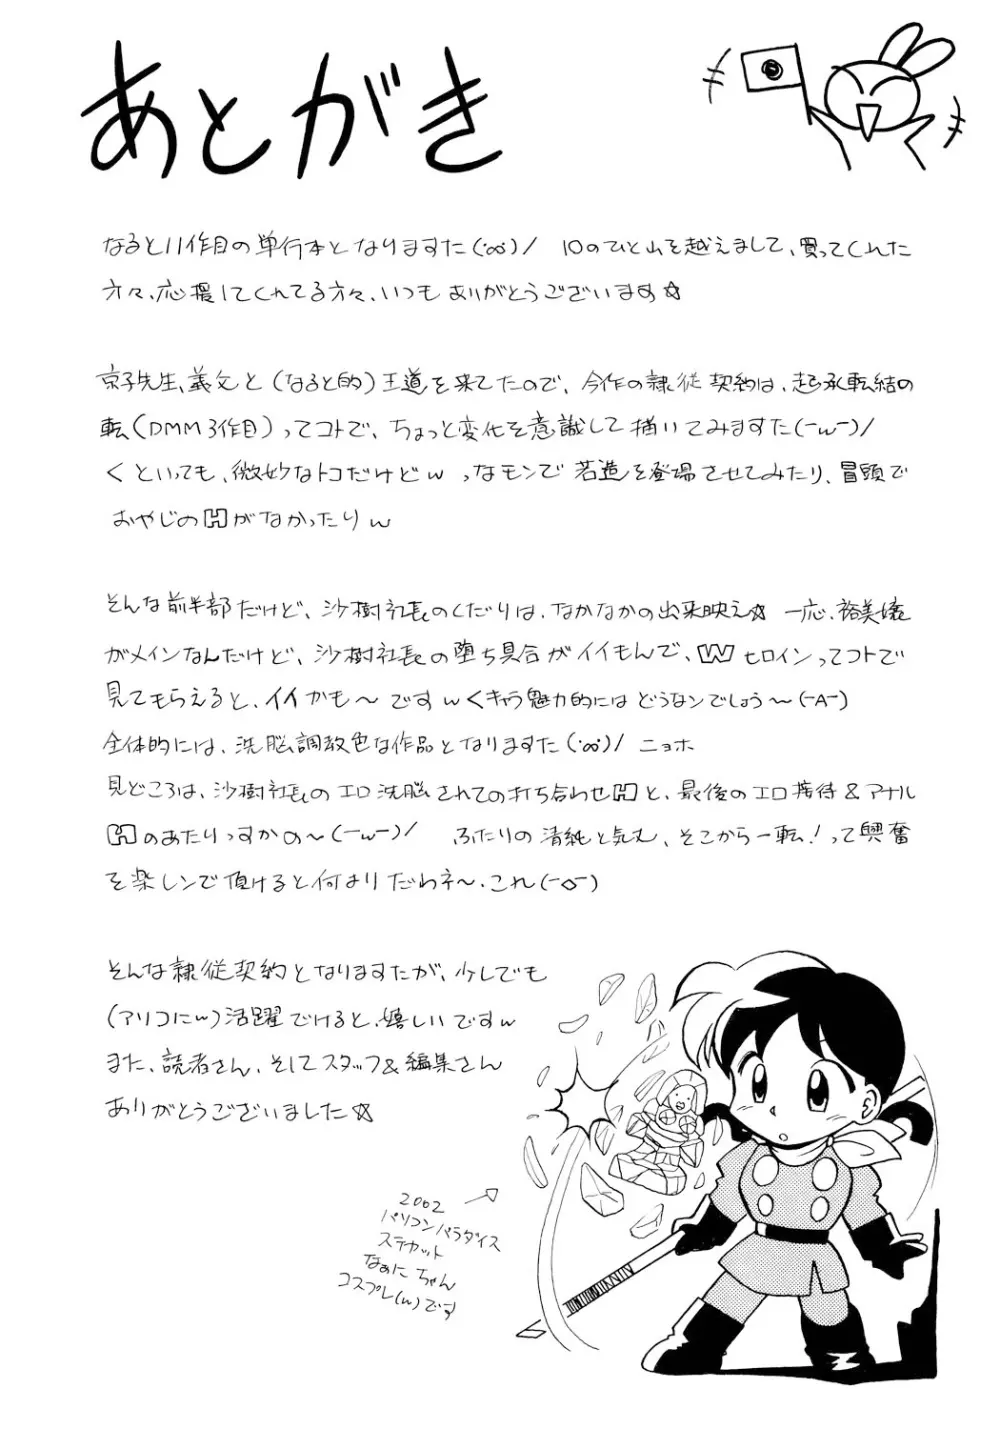 あとがき
なると11作目の単行本となりますた(°∞°)/ 10のひと山を越えまして、買ってくれた
方々、応援してくれてる方々、いつもありがとうございます☆
京子先生、義父と(なると的)王道を来てたので、今作の隷従契約は、起承転結の
転(DMM3作目)ってコトで、ちょっと変化を意識して描いてみますた(ーwー)/
くといっても、微妙なトコだけどw っなモンで若造を登場させてみたり、冒頭で
おやじのHがなかったりw
そんな前半部だけど、沙樹社長のくだりは、なかなかの出来映え☆ 一応、裕美嬢
がメインなんだけど、沙樹社長の堕ち具合がイイもんで、WヒロインってコトでЫ
見てもらえると、イイかも〜ですw くキャラ魅力的にはどうなンでしょう〜(ーAー)
全体的には、洗脳調教色な作品となりますた(°∞°)/ ニョホ
見どころは、沙樹社長のエロ洗脳されての打ち合わせHと、最後のエロ接待&アナル
Hのあたりっすかの〜(ーwー)/ ふたりの清純と気丈、そこから一転!って興奮
を楽しンで頂けると何よりだわネ〜、これ(ー◇ー)
そんな隷従契約となりますたが、少しでも
(アリコにw)活躍でけると、嬉しいですw
また、読者さん、そしてスタッフ&編集さん
ありがとうございました☆
2002
パソコンパラダイス
ステカット
なぁにちゃん
コスプレ(w)です